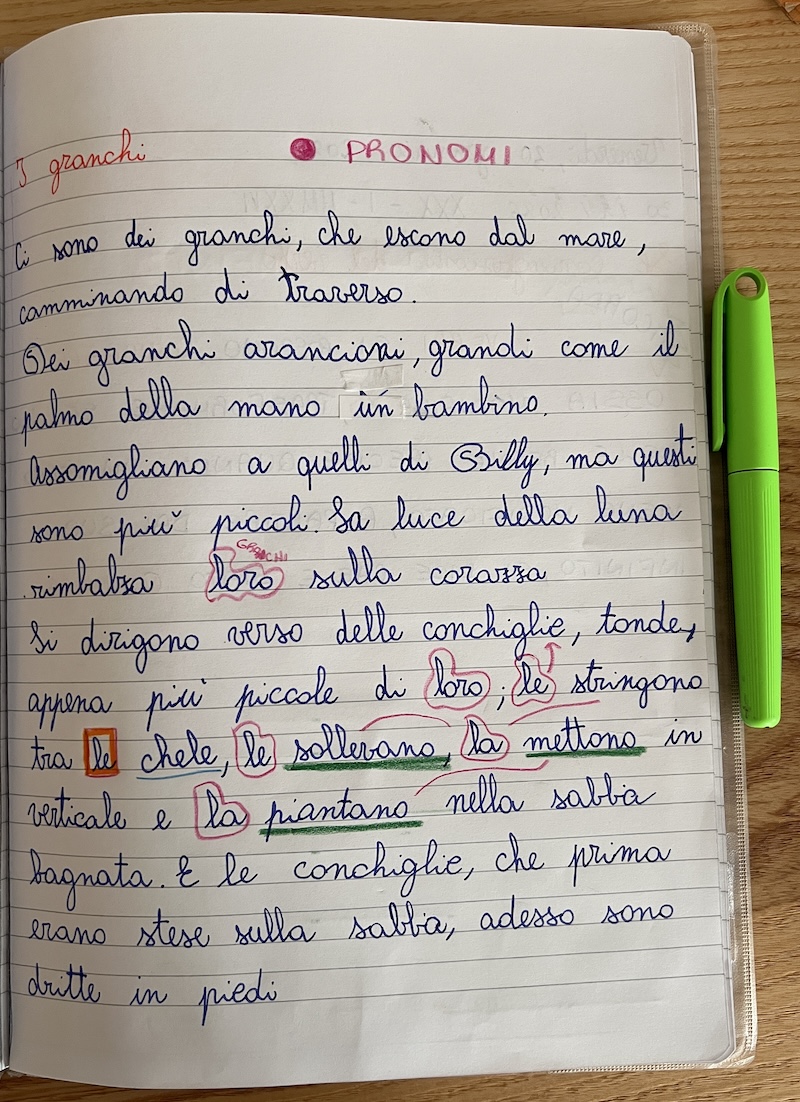 I granchi PRONOMI
Ci sono dei granchi, che escono dal mare,
camminando di traverso.
Dei granchi arancioni, grandi come il
palmo della mano un bambino.
Assomigliano a quelli di Billy, ma questi
sono più piccoli. La luce della luna
GRANCHI
rimbalza loro sulla corazza
Si dirigono verso delle conchiglie, tonde,
appena più piccole di loro; le stringono
tra le chele, le sollevano, la mettono in
verticale e la piantano nella sabbia
bagnata. E le conchiglie, che prima
erano stese sulla sabbia, adesso sono
dritte in piedi